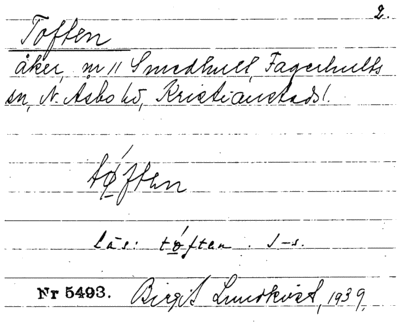 2.
Toften
åker, nr 11 Smedhult, Fagerhults
sn, N. Åsbo hd, Kristianstads l.
tǿften
läs: tǿften. J-s.
Nr 5493. Birgit Lundkvist, 1939.